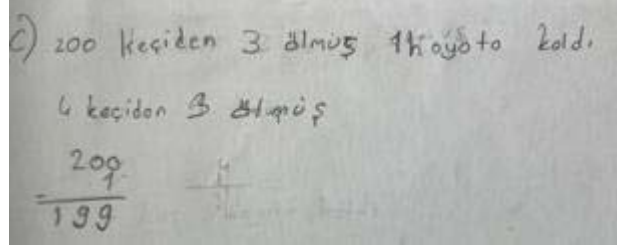 C) 200 keçiden 3 ölmüş 1 hayata kaldı.
4 keçiden 3 ölmüş
200
- 1
199